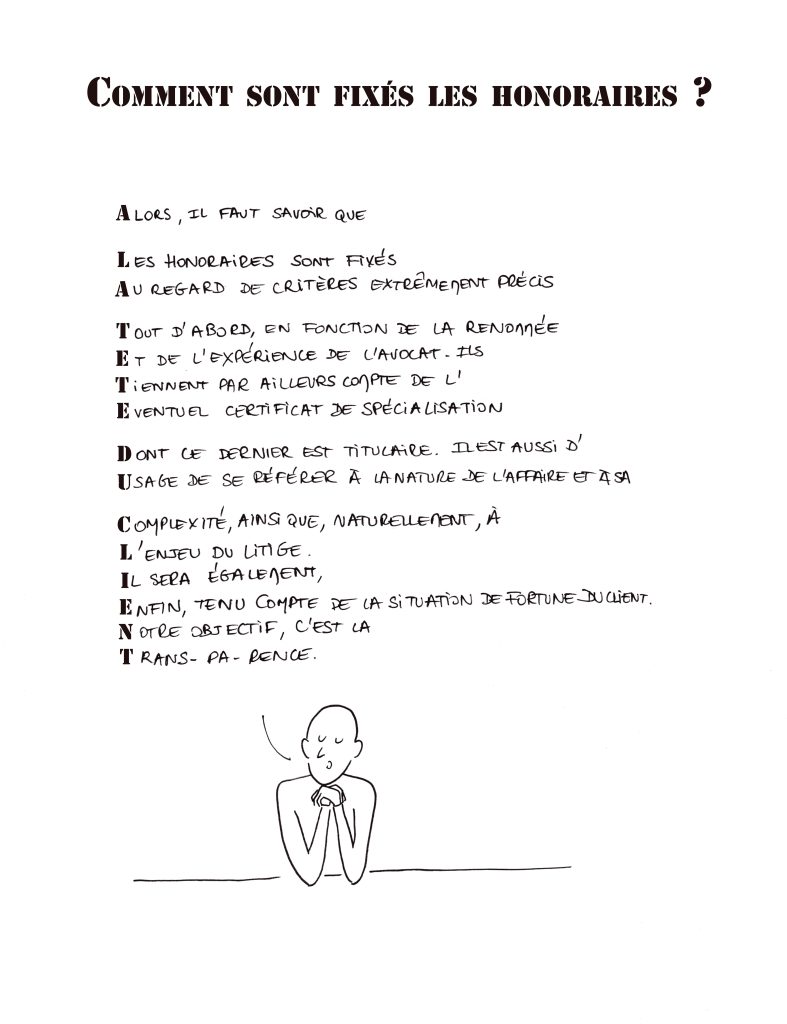 Comment sont fixés les honoraires ?
Alors, il faut savoir que
Les honoraires sont fixés
Au regard de critères extrêmement précis
Tout d'abord, en fonction de la renommée
Et de l'expérience de l'avocat. Ils
Tiennent par ailleurs compte de l'
Eventuel certificat de spécialisation
Dont ce dernier est titulaire. Il est aussi d'
Usage de se référer à la nature de l'affaire et à sa
Complexité, ainsi que, naturellement, à
L'enjeu du litige.
Il sera également,
Enfin, tenu compte de la situation de fortune du client.
Notre objectif, c'est la
Trans- pa- rence.